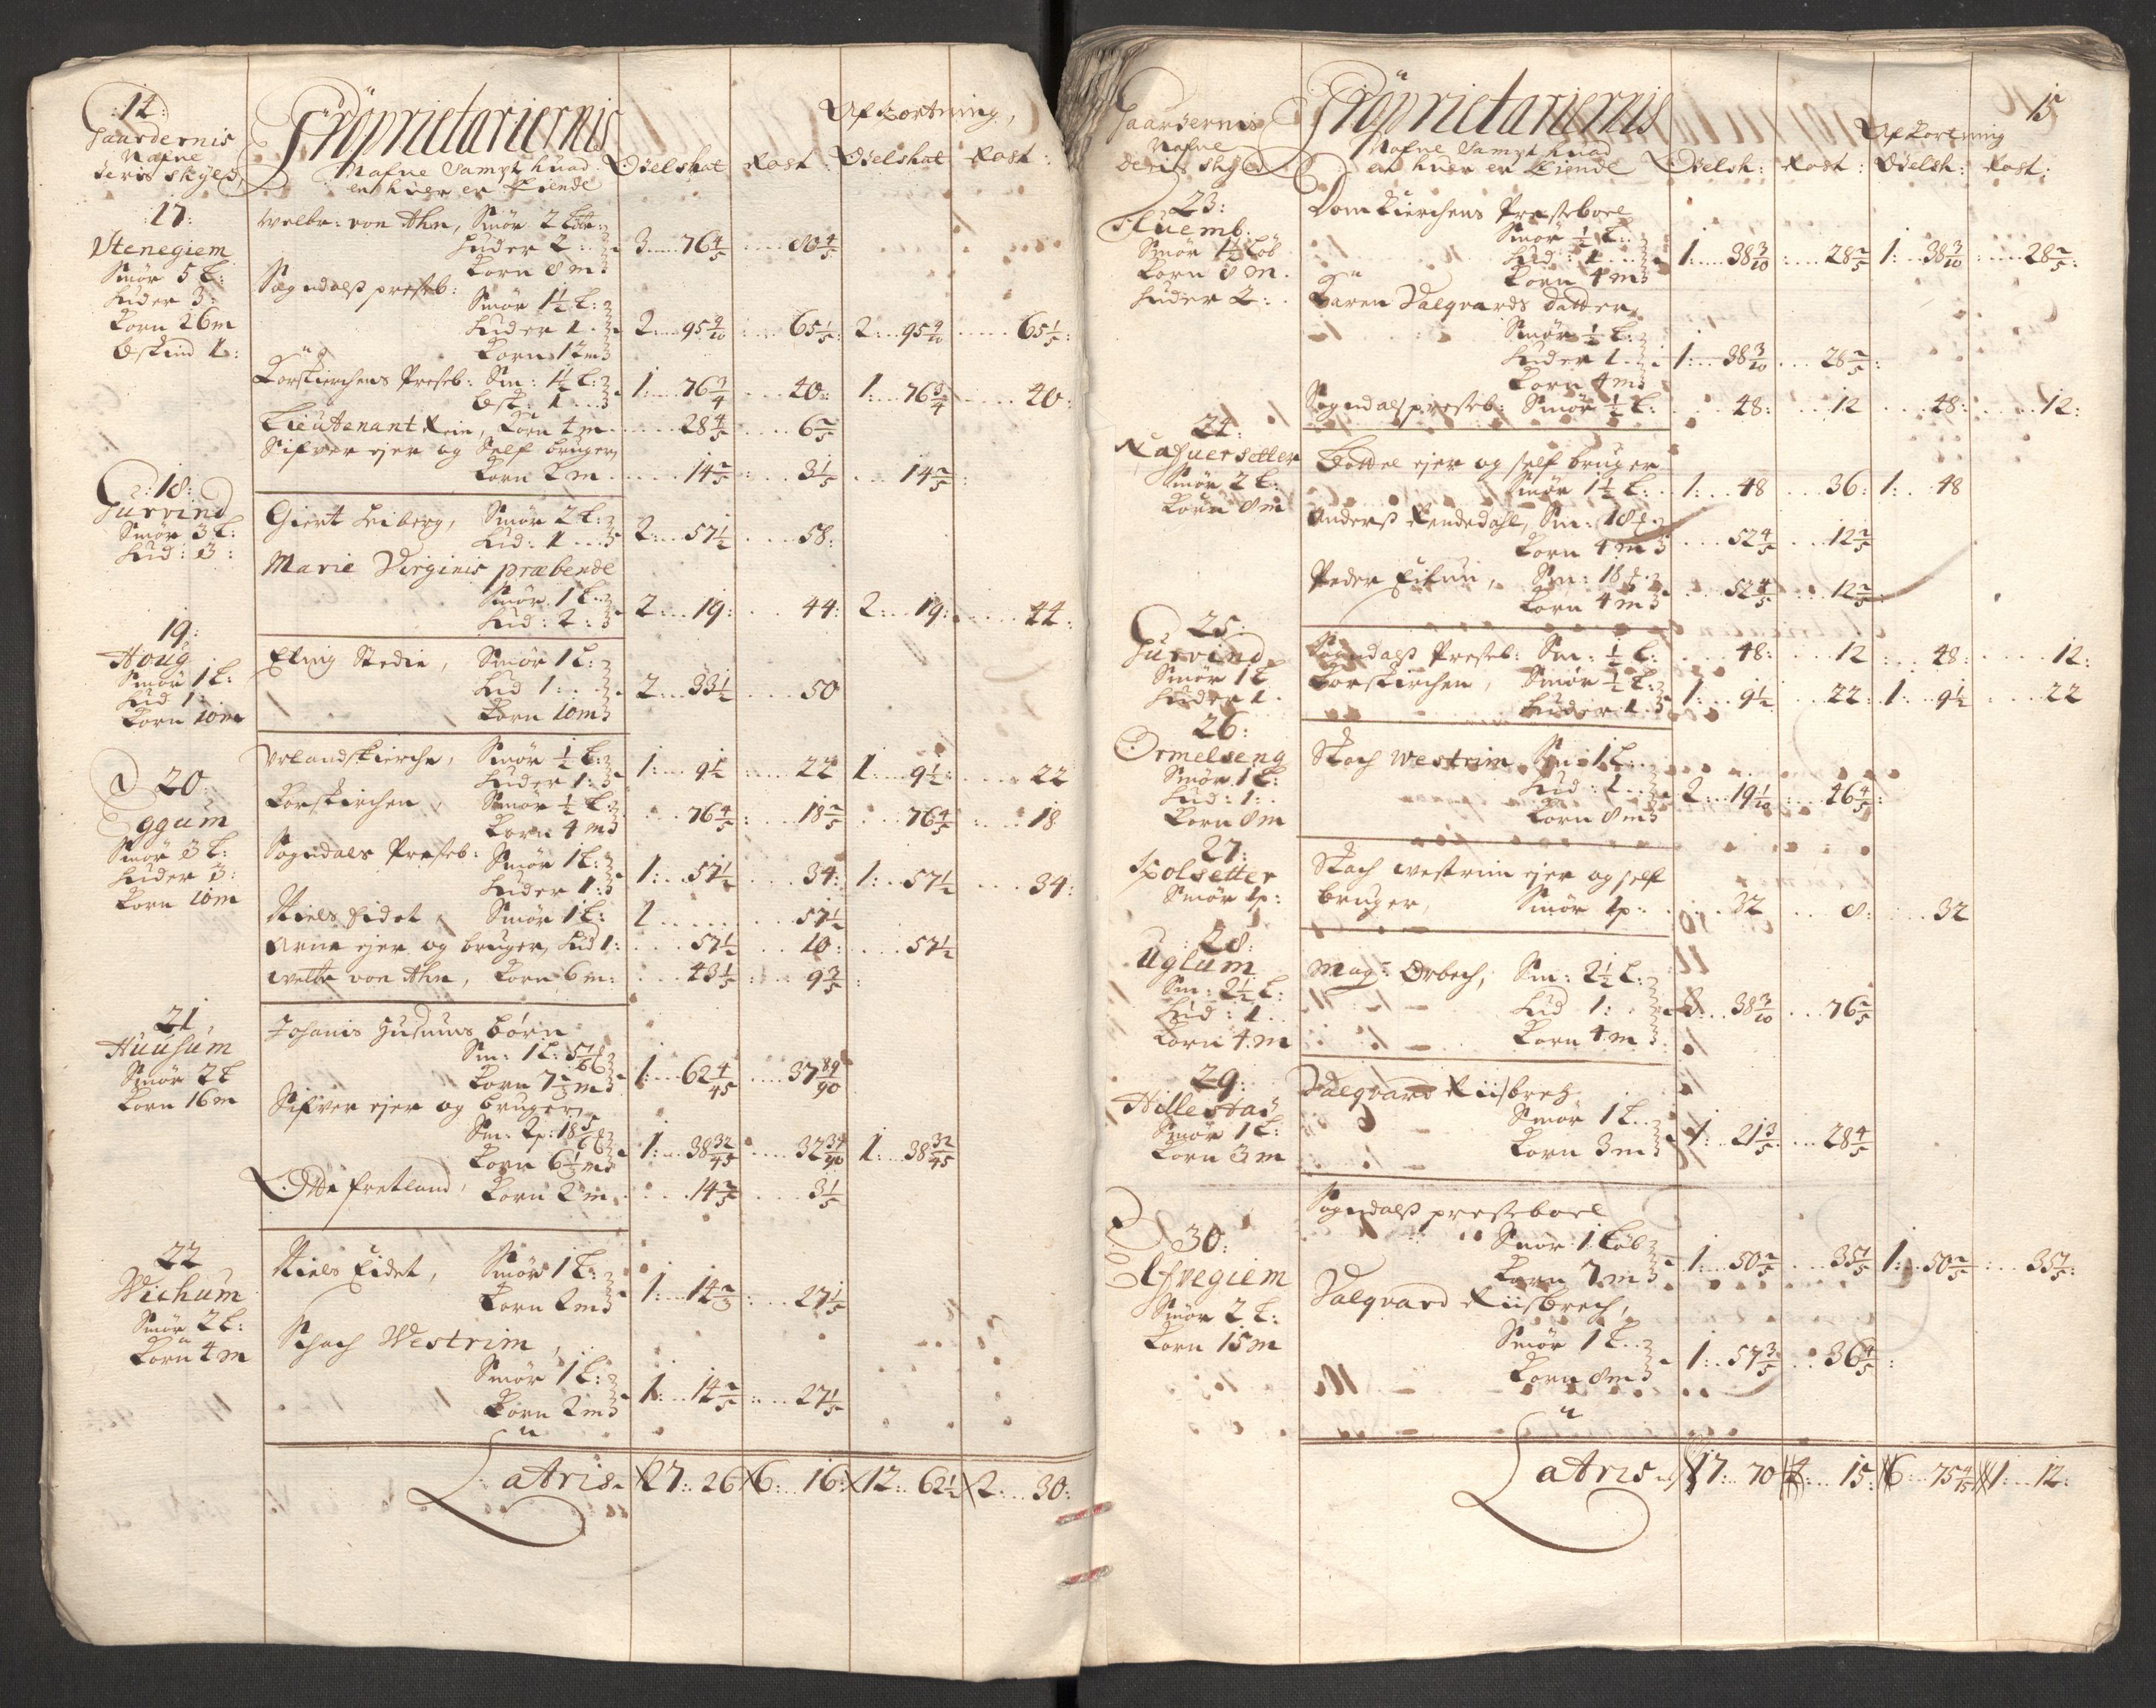 :14:
Gaardernis
Nafne
deris Skyld
Proprietariernis
Nafne Sampt huad
en huer er Eiende
Odelskat Rost:
Afkortning,
Odelskat Rost:
:17:
Stenegiem
Smör 5 L:
Huder 3:
Korn 26m
Velbr: von Ahn, Smör 2 L:
Huder 2:
Korn 8 m
3...76 4/5 ....80 4/5
Sogndals preseb:
Smör 1½ L:
Huder 1..
Korn 12m
2...95 9/10 ....65 1/5: 2...95 9/10 .....65 1/5:
Korskirchens Preseb: Sm: 1½ L:
1:...76 3/4 ...40: 1:...76 3/4 ....40:
Lieutenant Rein, Korn 4m ....28 4/5 ....6 2/5
Sifver ejer og Self bruger,
Korn 2m .....14 2/5 ....3 1/5 ...14 2/5:
:18:
Gurvind
Smör 3 L:
Hud: 3:
Giert Leiberg, Smör 2 L:
Hud: 1...
2:..57½ ....58:
Marie Virginis præbende
Smör 1 L:
Hud: 2:
2...19: ...44: 2:..19: .....44:
19:
Houg
Smör 1 L:
Hud 1:
Korn 10m
Eling Stedie, Smör 1 L:
Hud 1:
Korn 10m
2...33½ ....50
20:
Eggum
Smör 3 L:
Huder 3:
Korn 10m
Urlandskirche, Smör ½ L:
Huder 1:
1:...9½ ....22 1:...9½: .....22
Korskirchen, Smör ½ L:
Korn 4 m
...76 4/5 ....18 2/5 ...76 4/5 ....18
Sogndals Preseb: Smör 1 L:
Huder 1:
1:..57½ ...34: 1:..57½ ....34:
Niels Eidet, Smör 1 L: 1 ......57½
Arne ejer og bruger, Hud 1: ...57½ ...10: ....57½
Velbr von Ahn, Korn 6m: ...43 1/5 ....9 3/5:
21,
Huusum
Smör 2 L
Korn 16m
Johanis Husums börn
Korn 7 2/3 m
1:...62 4/45 ....37 89/90
Sifver ejer og bruger,
Korn 6 1/3 m
1:...38 32/45 ....32 34/90 1:...38 32/45
Otte Fretland, Korn 2m ....14 2/5 ....3 1/5
22
Wichum
Smör 2 L:
Korn 4 m
Niels Eidet, Smör 1 L:
Korn 2m
1:...14 2/5 ....27 1/5
Schach Westrim,
Smör 1 L:
Korn 2m
1:...14 2/5 ....27 1/5
Latris. 27:..26 6:..16: 12:..62½ 2:...30:
15
Gaardernis
Nafne
deris skyld
Proprietariernis
Nafne Sampt huad
en huer er Eiende
Odelsk: Rost:
Afkortning
Odelsk: Rost:
23:
Smör 1½ Löb
Korn 8 m.
Huder 2:
Domkierchens Preseboel
Smör ½ L:
Hud: 1...
Korn 4m
1:...38 3/10 ....28 2/5 1:..38 3/10 .....28 2/5:
Karen Dalqvards datter
Smör ½ L:
Huder 1..
Korn 4m
1:...38 3/10 ....28 2/5:
Sogndals preseb: Smör ½ L: ...48: ...12 ...48: ....12:
24:
Smör 2 L:
Korn 8m
Bottel ejer og self bruger
Smör 1½ L: 1:...48 ...36: 1:..48
Anders Rendedahl, Sm: 18
Korn 4 m
...52 4/5 ...12 2/5
Peder Eitun, Sm: 18
Korn 4m
...52 4/5 ...12 2/5:
25:
Gurvind
Smör 1 L
Huder 1.
Sogndals Preseb: Sm: ½ L: ...48: ...12 :...48: .....12:
Korskirchen, Smör ½ L:
Huder 1.
1:...9½ ....22: 1:..9½ ....22
26:
Ormelseng
Smör 1 L:
Hud: 1:
Korn 8m
Skach Westrim Sm: 1 L:
Hud: 1..
Korn 8m
2:..19 1/10 ....46 4/5:
27:
Spolsetter
Smör 1p:
Skach westrim ejer og self
bruger, Smör 1p: ...32 ...8: ...32
:28:
Uglum
Sm: 2½ L:
Hud: 1..
Korn 4.m
Mag: Orbech, Sm: 2½ L:
Hud 1:
Korn 4.m
3...38 3/10 ...76 2/5
29:
Hillestad
Smör 1 L:
Korn 3m
Dalqvard Riisbrech
Smör 1 L..
Korn 3m
1:..21 3/5 ...28 4/5
30:
Smör 2 L:
Korn 15m
Sogndals preseboel
Smör 1 Löb
Korn 7.m
1...50 2/5 ...35 1/5 1:..50 2/5 ....35 1/5:
Dalqvard Riisbrech,
Smör 1 L..
Korn 8m
1:..57 3/5 ...36 4/5:
Latris 17:..70 4:...15: 6:..75 4/15 1:..12: